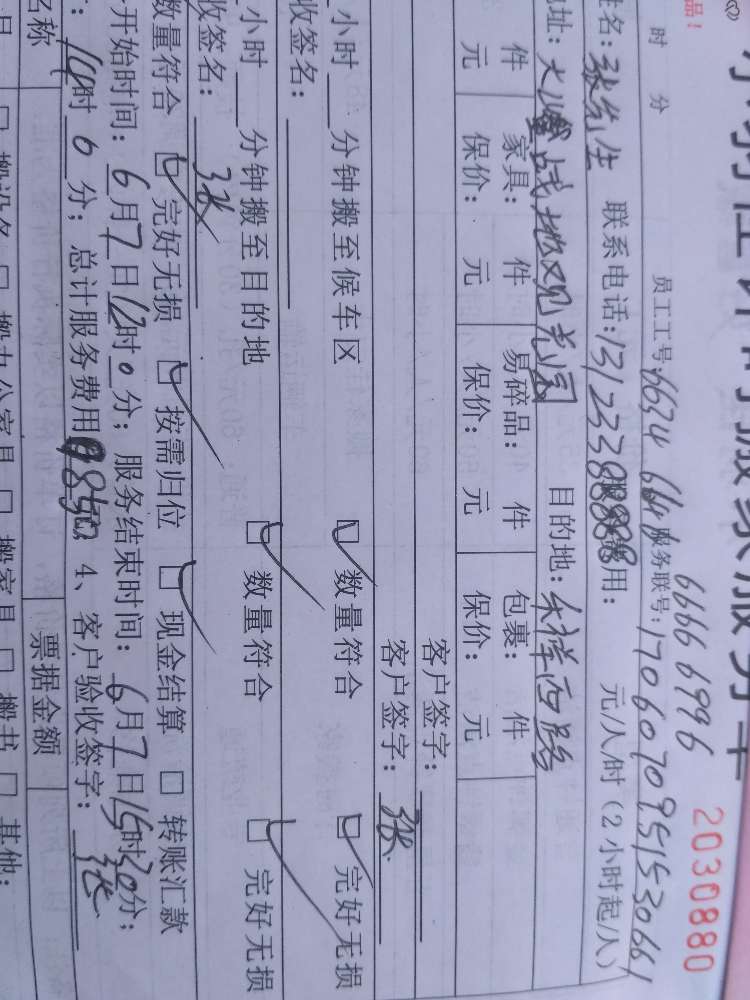 小时行性计时搬家服务卡
2030880
品！
6666 6996
时 分 员工工号: 6634 6641 服务联号: 1706070951530661
姓名: 张先生 联系电话: 13123388888 费用: 元/人/时（2小时起/人）
地址: 战地观光园 目的地: 乐祥西路
件 家具: 件 易碎品: 件 包裹: 件
元 保价: 元 保价: 元 保价: 元
客户签字:
客户签字: 张
小时 分钟搬至候车区 数量符合 完好无损
收签名:
小时 分钟搬至目的地 数量符合 完好无损
收签名: 张
数量符合 完好无损 按需归位 现金结算 转账汇款
开始时间: 6月7日12时0分; 服务结束时间: 6月7日15时30分;
时 0 分; 总计服务费用 850 4、客户验收签字: 张
名称 票据金额
搬设备 搬办公家具 搬家具 搬书 其他: